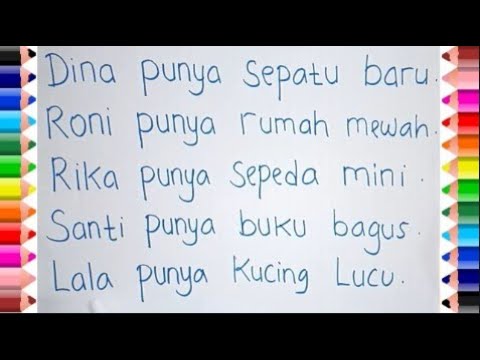 Dina punya sepatu baru.
Roni punya rumah mewah.
Rika punya sepeda mini.
Santi punya buku bagus.
Lala punya kucing Lucu.